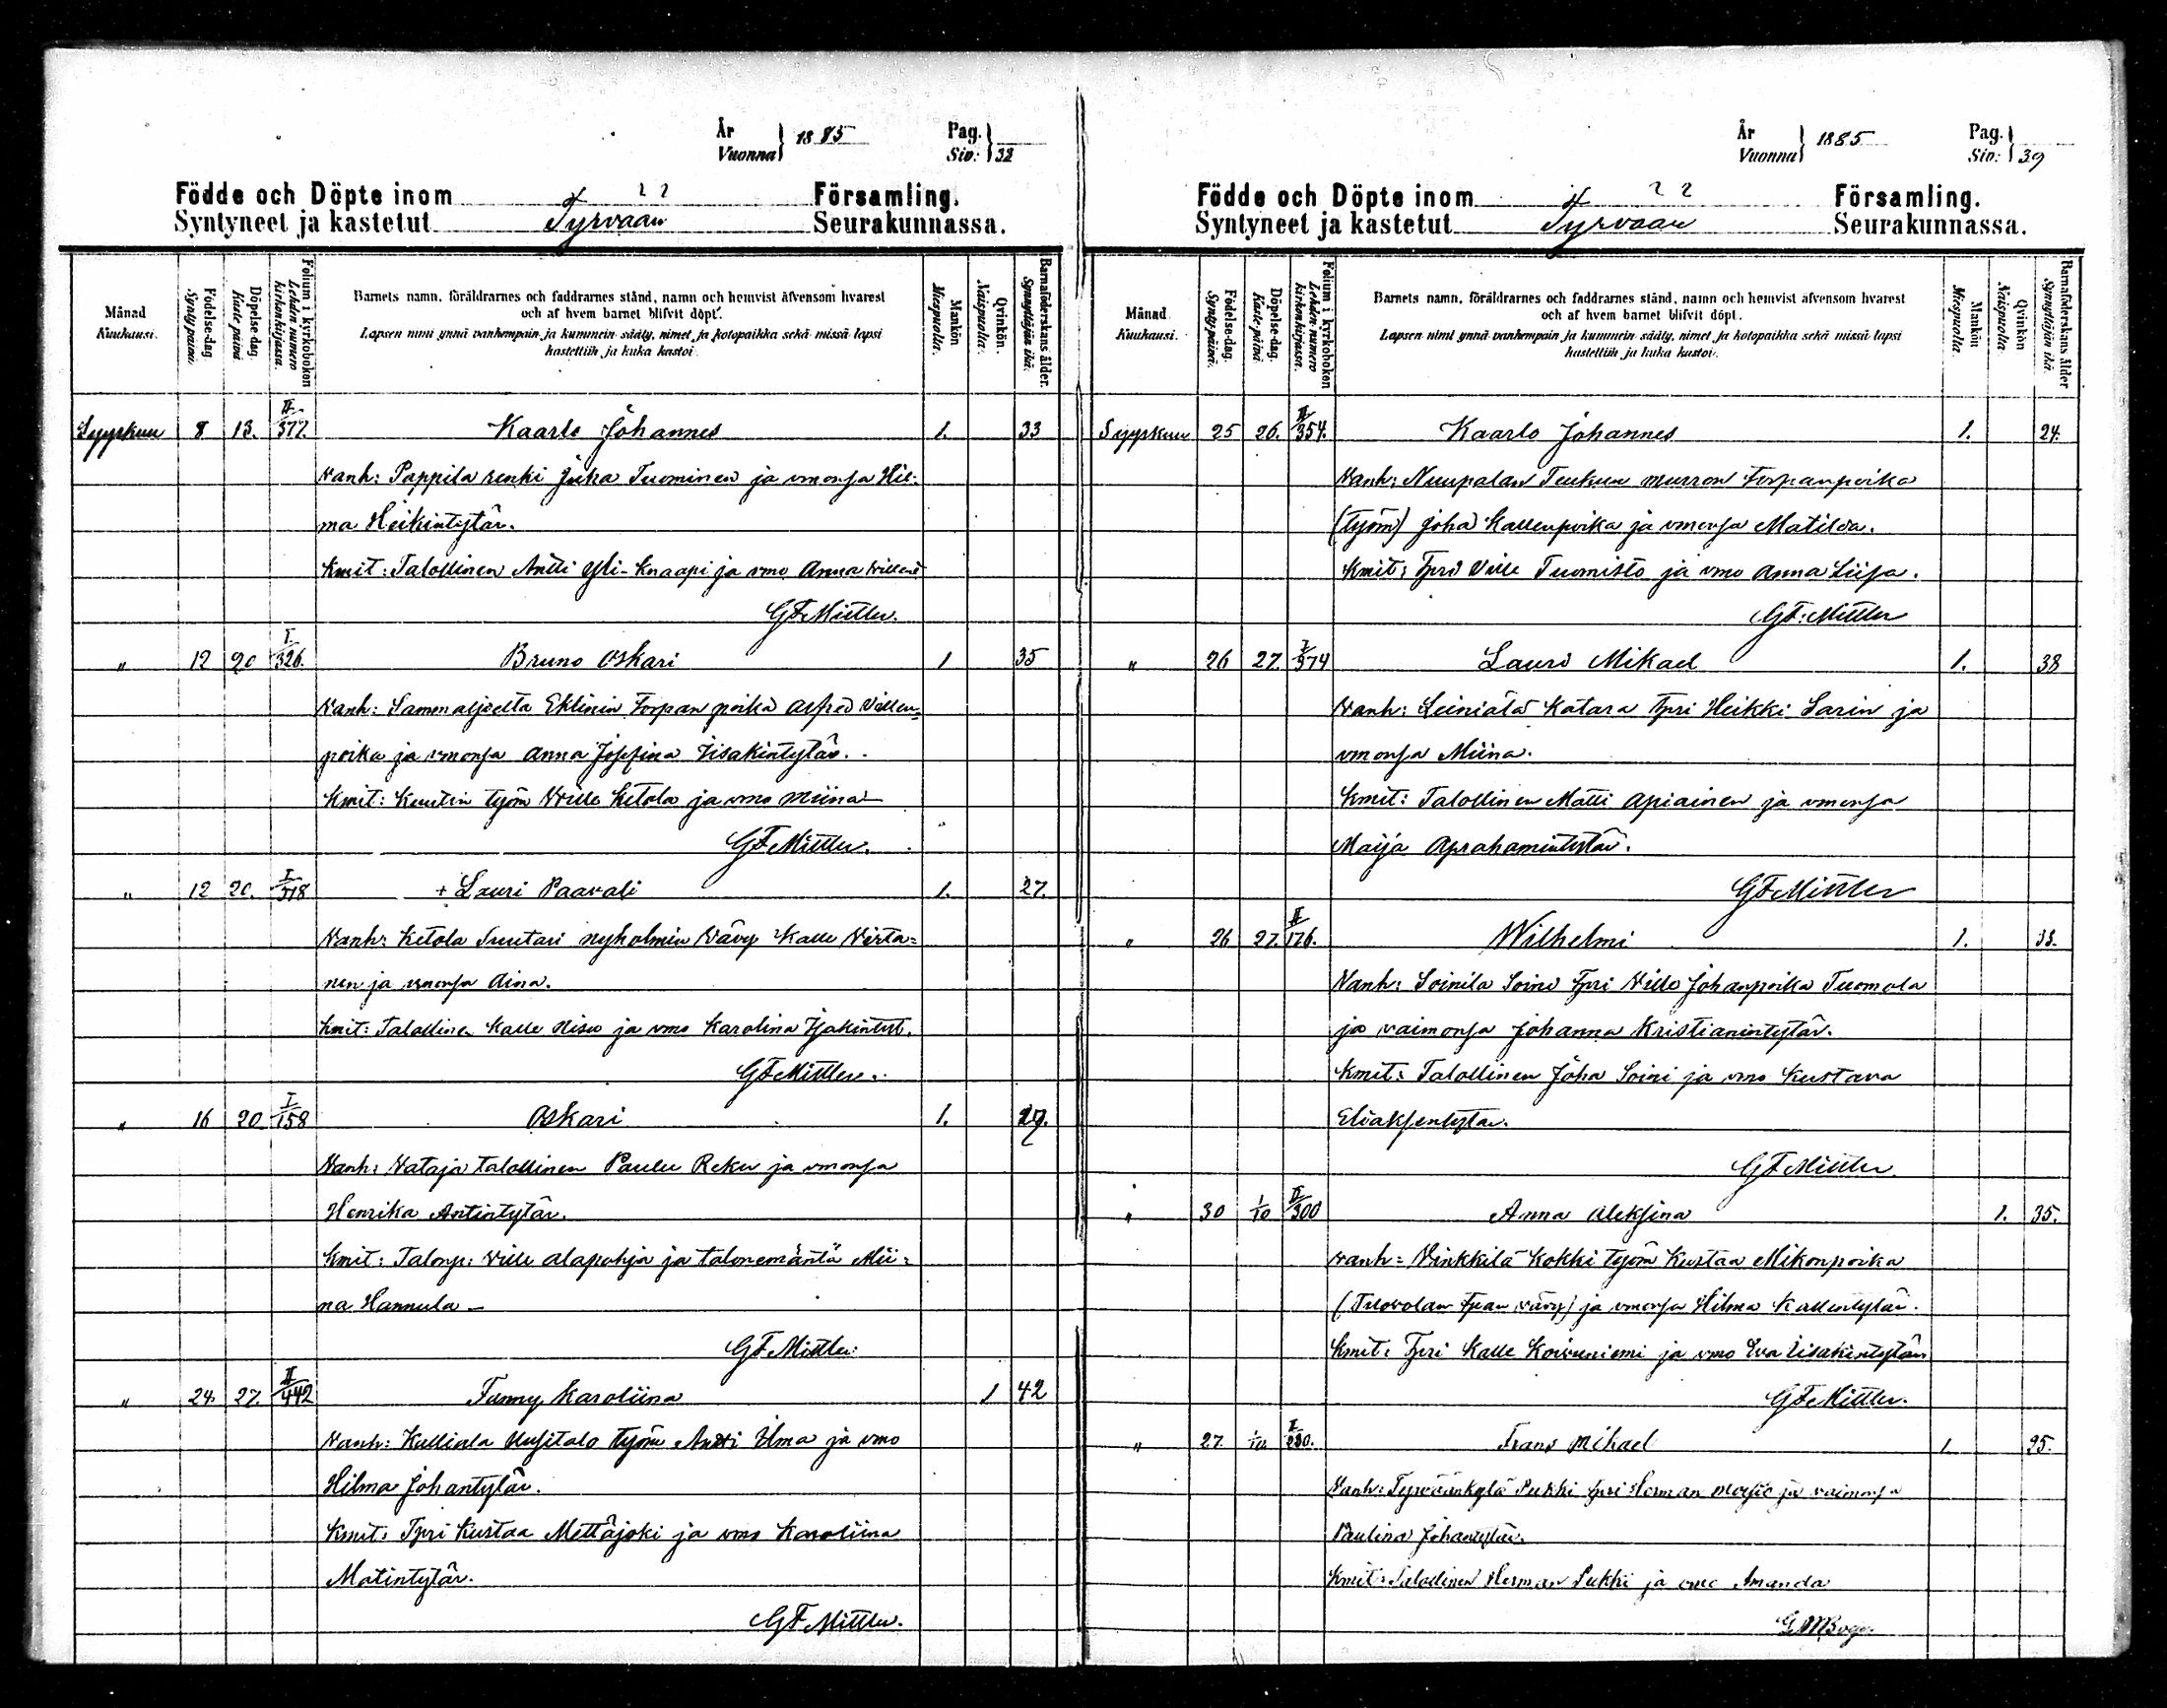 År
Vuonna } 1885
Pag.
Siv: } 32
Födde och Döpte inom Församling.
Syntyneet ja kastetut Tyrvaan Seurakunnassa.
Månad
Kuukausi.
Födelse-dag
Synty-päivä.
Döpelse-dag.
Kaste-päivä
Folium i kyrkoboken
Lehden numero
kirkonkirjassa.
Barnets namn, föräldrarnes och faddrarnes stånd, namn och hemvist äfvensom hvarest
och af hvem barnet blifvit döpt.
Lapsen nimi ynnä vanhempain ja kummein sääty, nimet ja kotopaikka sekä missä lapsi
kastettiih ja kuka kastoi.
Mankön
Miespuolia.
Qvinkön.
Naispuolia.
Barnaföderskans ålder.
Synnyttäjän ikä.
Syyskuu 8 13. II/377. Kaarlo Johannes 1. 33
Vanh: Pappila renki Juka Tuominen ja vmonsa Hil-
ma Heikintytär.
Kmit: Talollinen Antti Yli-Knaapi ja vmo Anna
GFMittler.
" 12 20 I/326. Bruno Oskari 1 35
Vanh: Sammaljoelta Eklinin Torpan poika Alfred Villen-
poika ja vmonsa Anna Josefina Iisakintytär.
Kmit: Kuutin työm Ville Ketola ja vmo Miina
GFMittler.
" 12 20. I/518 + Lauri Paavali 1. 27.
Vanh: Ketola Suutari Nyholmin Vävy Kalle Virta=
nen ja vmonsa Aina.
Kmit: Talollinen Kalle ja vmo Karolina Isakintyt.
GFMittler.
" 16 20. I/158 Oskari 1.
Vanh: Nataja talollinen Paulu Reku ja vmonsa
Henrika Antintytär.
Kmit: Talonp: Ville Alapohja ja talonemäntä Mii=
na Hannula –
GFMittler.
" 24. 27. II/442 Fanny Karoliina 1 42
Vanh: Kalliala Uusitalo työm Antti Ilma ja vmo
Hilma Johantytär.
Kmit: Tpri Kustaa Mettäjoki ja vmo Karoliina
Matintytär.
GFMittler.
År
Vuonna } 1885
Pag.
Siv: } 39
Födde och Döpte inom Församling.
Syntyneet ja kastetut Tyrvaan Seurakunnassa.
Månad
Kuukausi.
Födelse-dag.
Synty-päivä.
Döpelse-dag.
Kaste-päivä.
Folium i kyrkoboken
Lehden numero
kirkonkirjassa.
Barnets namn, föräldrarnes och faddrarnes stånd, namn och hemvist äfvensom hvarest
och af hvem barnet blifvit döpt.
Lapsen nimi ynnä vanhempain ja kummein sääty, nimet ja kotopaikka sekä missä lapsi
kastettiih ja kuka kastoi.
Mankön
Miespuolia.
Qvinkön
Naispuolia
Barnaföderskans ålder
Synnyttäjän ikä.
Syyskuu 25 26. II/354. Kaarlo Johannes 1. 24.
Vanh: Nuupalan Teukun murron Torpanpoika
(työm) Joha Kallenpoika ja vmonsa Matilda.
Kmit: Tpri Ville Tuomisto ja vmo Anna Liisa.
GF.Mittler
" 26 27. I/574 Lauri Mikael 1. 38
Vanh: Leiniälä Katara Tpri Heikki Sarin ja
vmonsa Miina.
Kmit: Talollinen Matti Apiainen ja vmonsa
Maija Aprahamintytär.
GFMittler
" 26 27. II/176. Wilhelmi 1. 33.
Vanh: Soinila Soini Tpri Ville Johanpoika Tuomola
ja vaimonsa Johanna Kristianintytär.
Kmit: Talollinen Joha Soini ja vmo Kustava
Eliaksentytar.
GFMittler
" 30 1/10 II/300 Anna Aleksina 1. 35.
Vanh: Vinkkilä Kokki työm Kustaa Mikonpoika
( Tpan vävy) ja vmonsa Hilma Kallentytär.
Kmit: Tpri Kalle Koivuniemi ja vmo Eva Iisakintytär
GFMittler.
" 27. 1/10. I/280. Frans Mikael 1. 25.
Vanh: Tyrväänkylä Pukki Tpri Herman ja vaimonsa
Paulina Johantytär.
Kmit: Talollinen Herman Pukki ja vmo Amanda